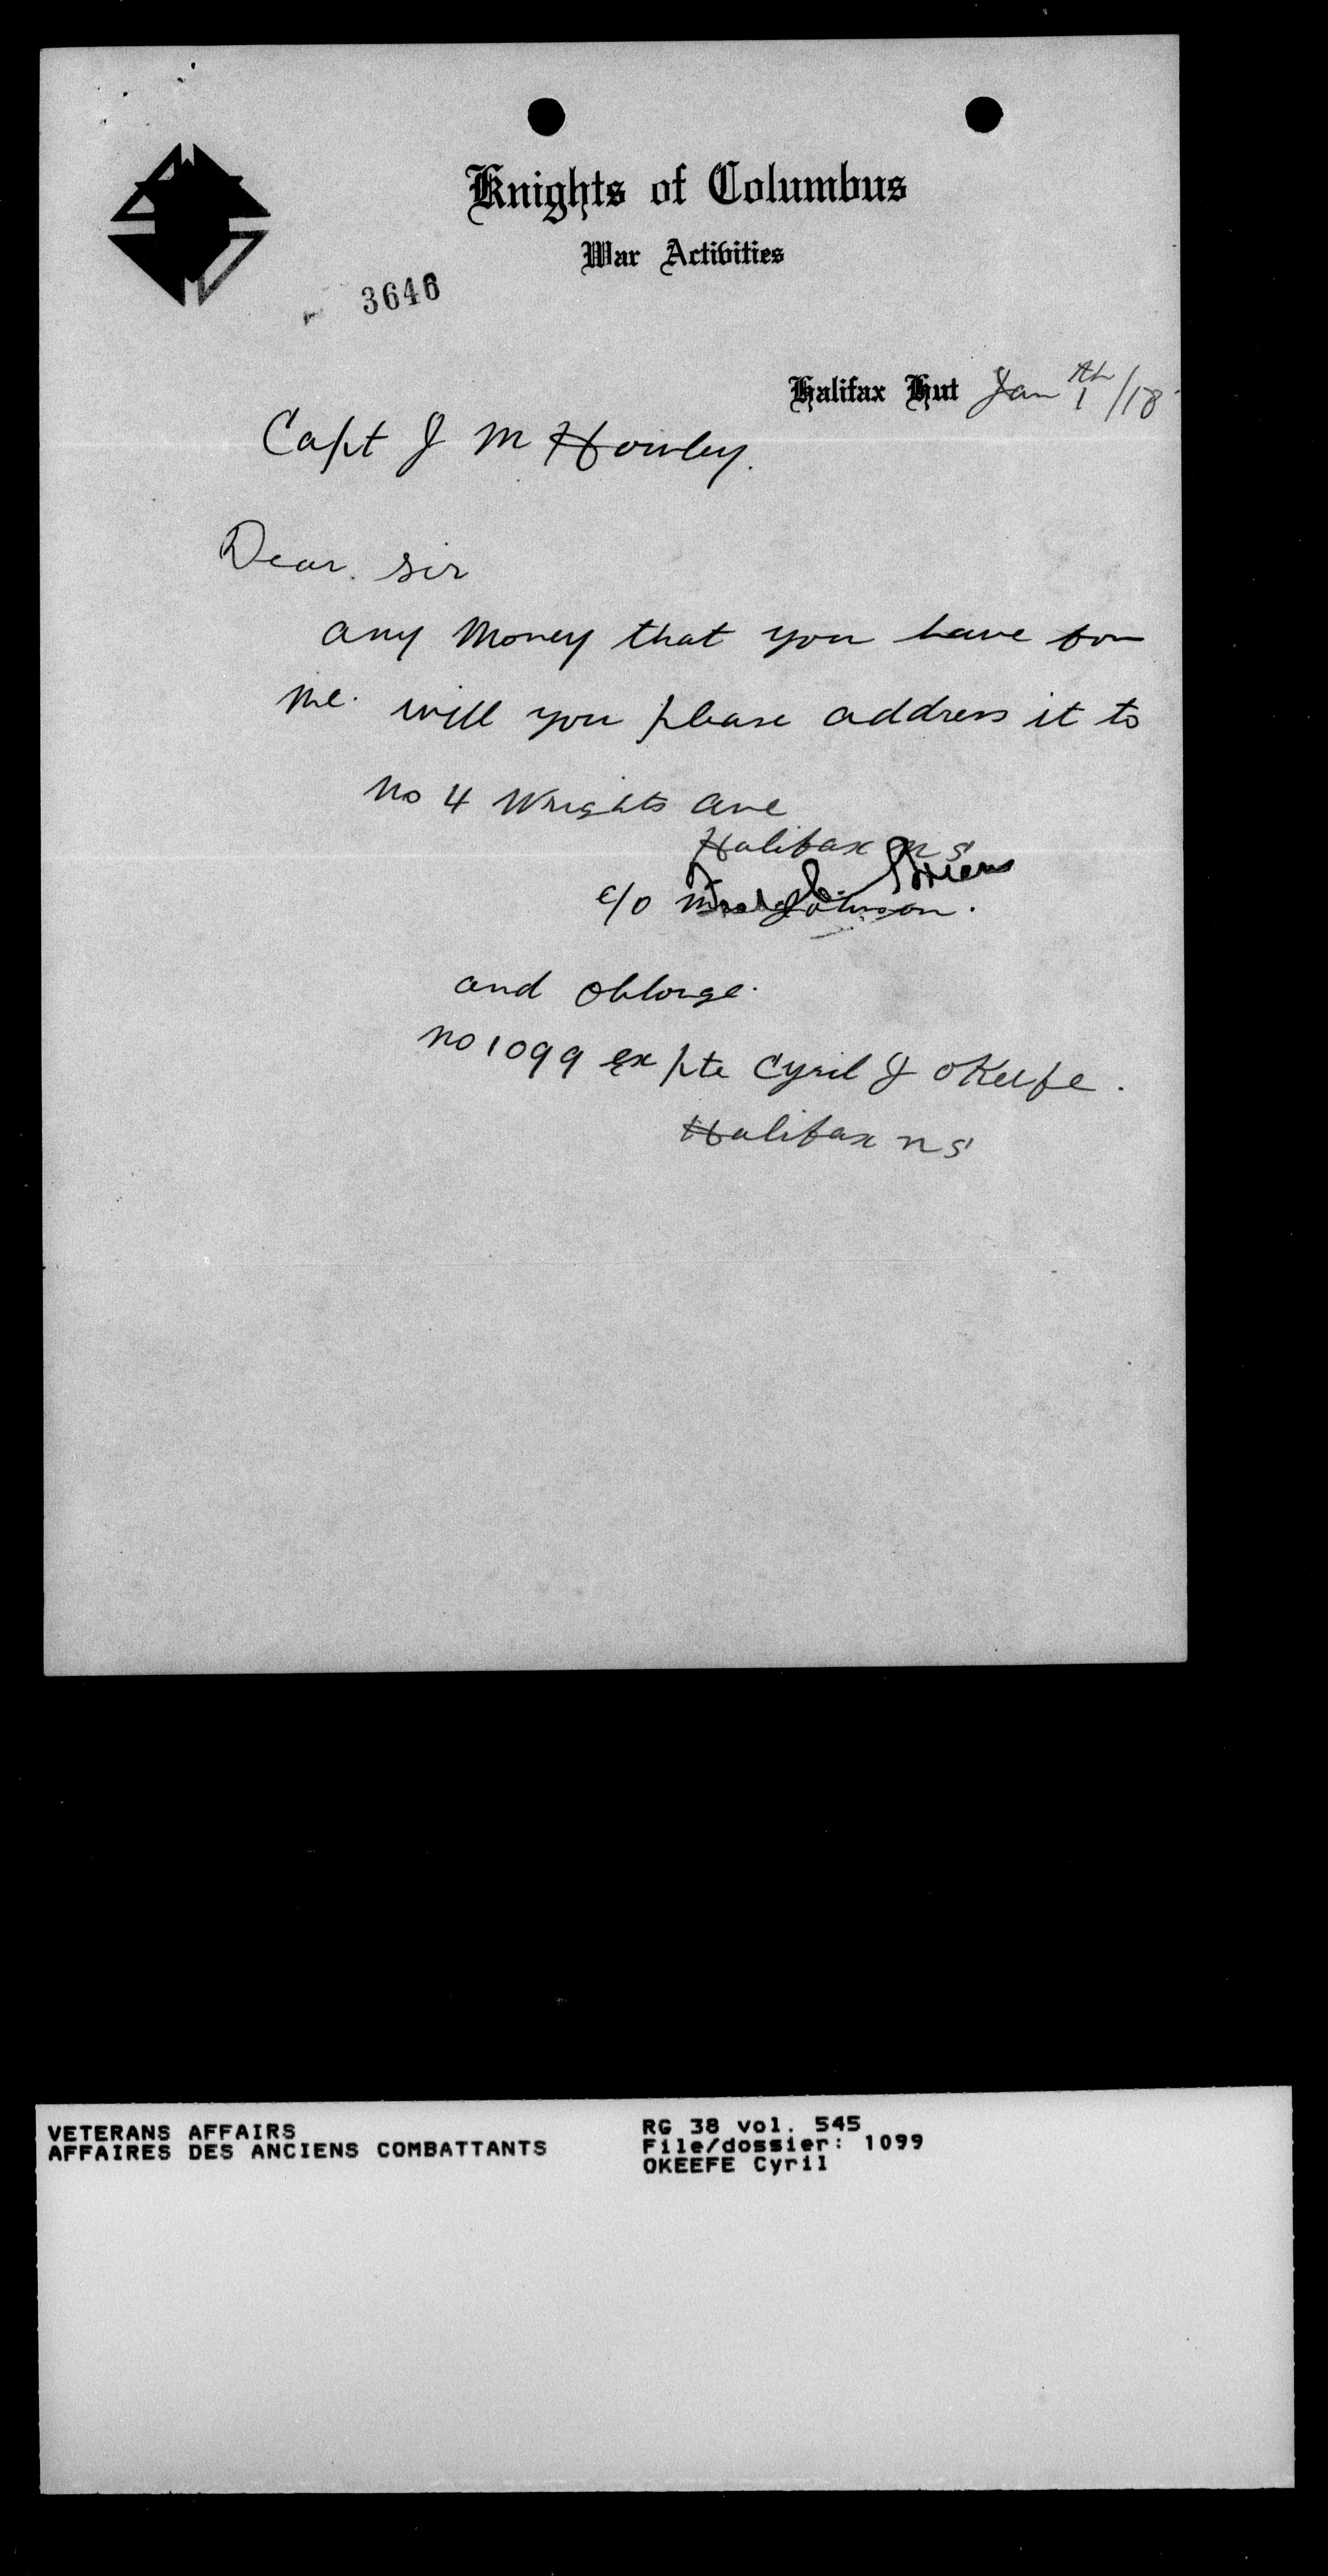 Knights of Columbus
War Activities
3646
Halifax Hut Jan 1th/18
Capt J M Howley.
Dear. sir
any Money that you have for
me. will you please address it to
no 4 Wrights ave
Halifax n s
c/o Johnson.
and oblouge.
no 1099 ex pte Cyril J oKeefe.
Halifax n s
VETERANS AFFAIRS
AFFAIRES DES ANCIENS COMBATTANTS
RG 38 vol. 545
File/dossier: 1099
OKEEFE Cyril